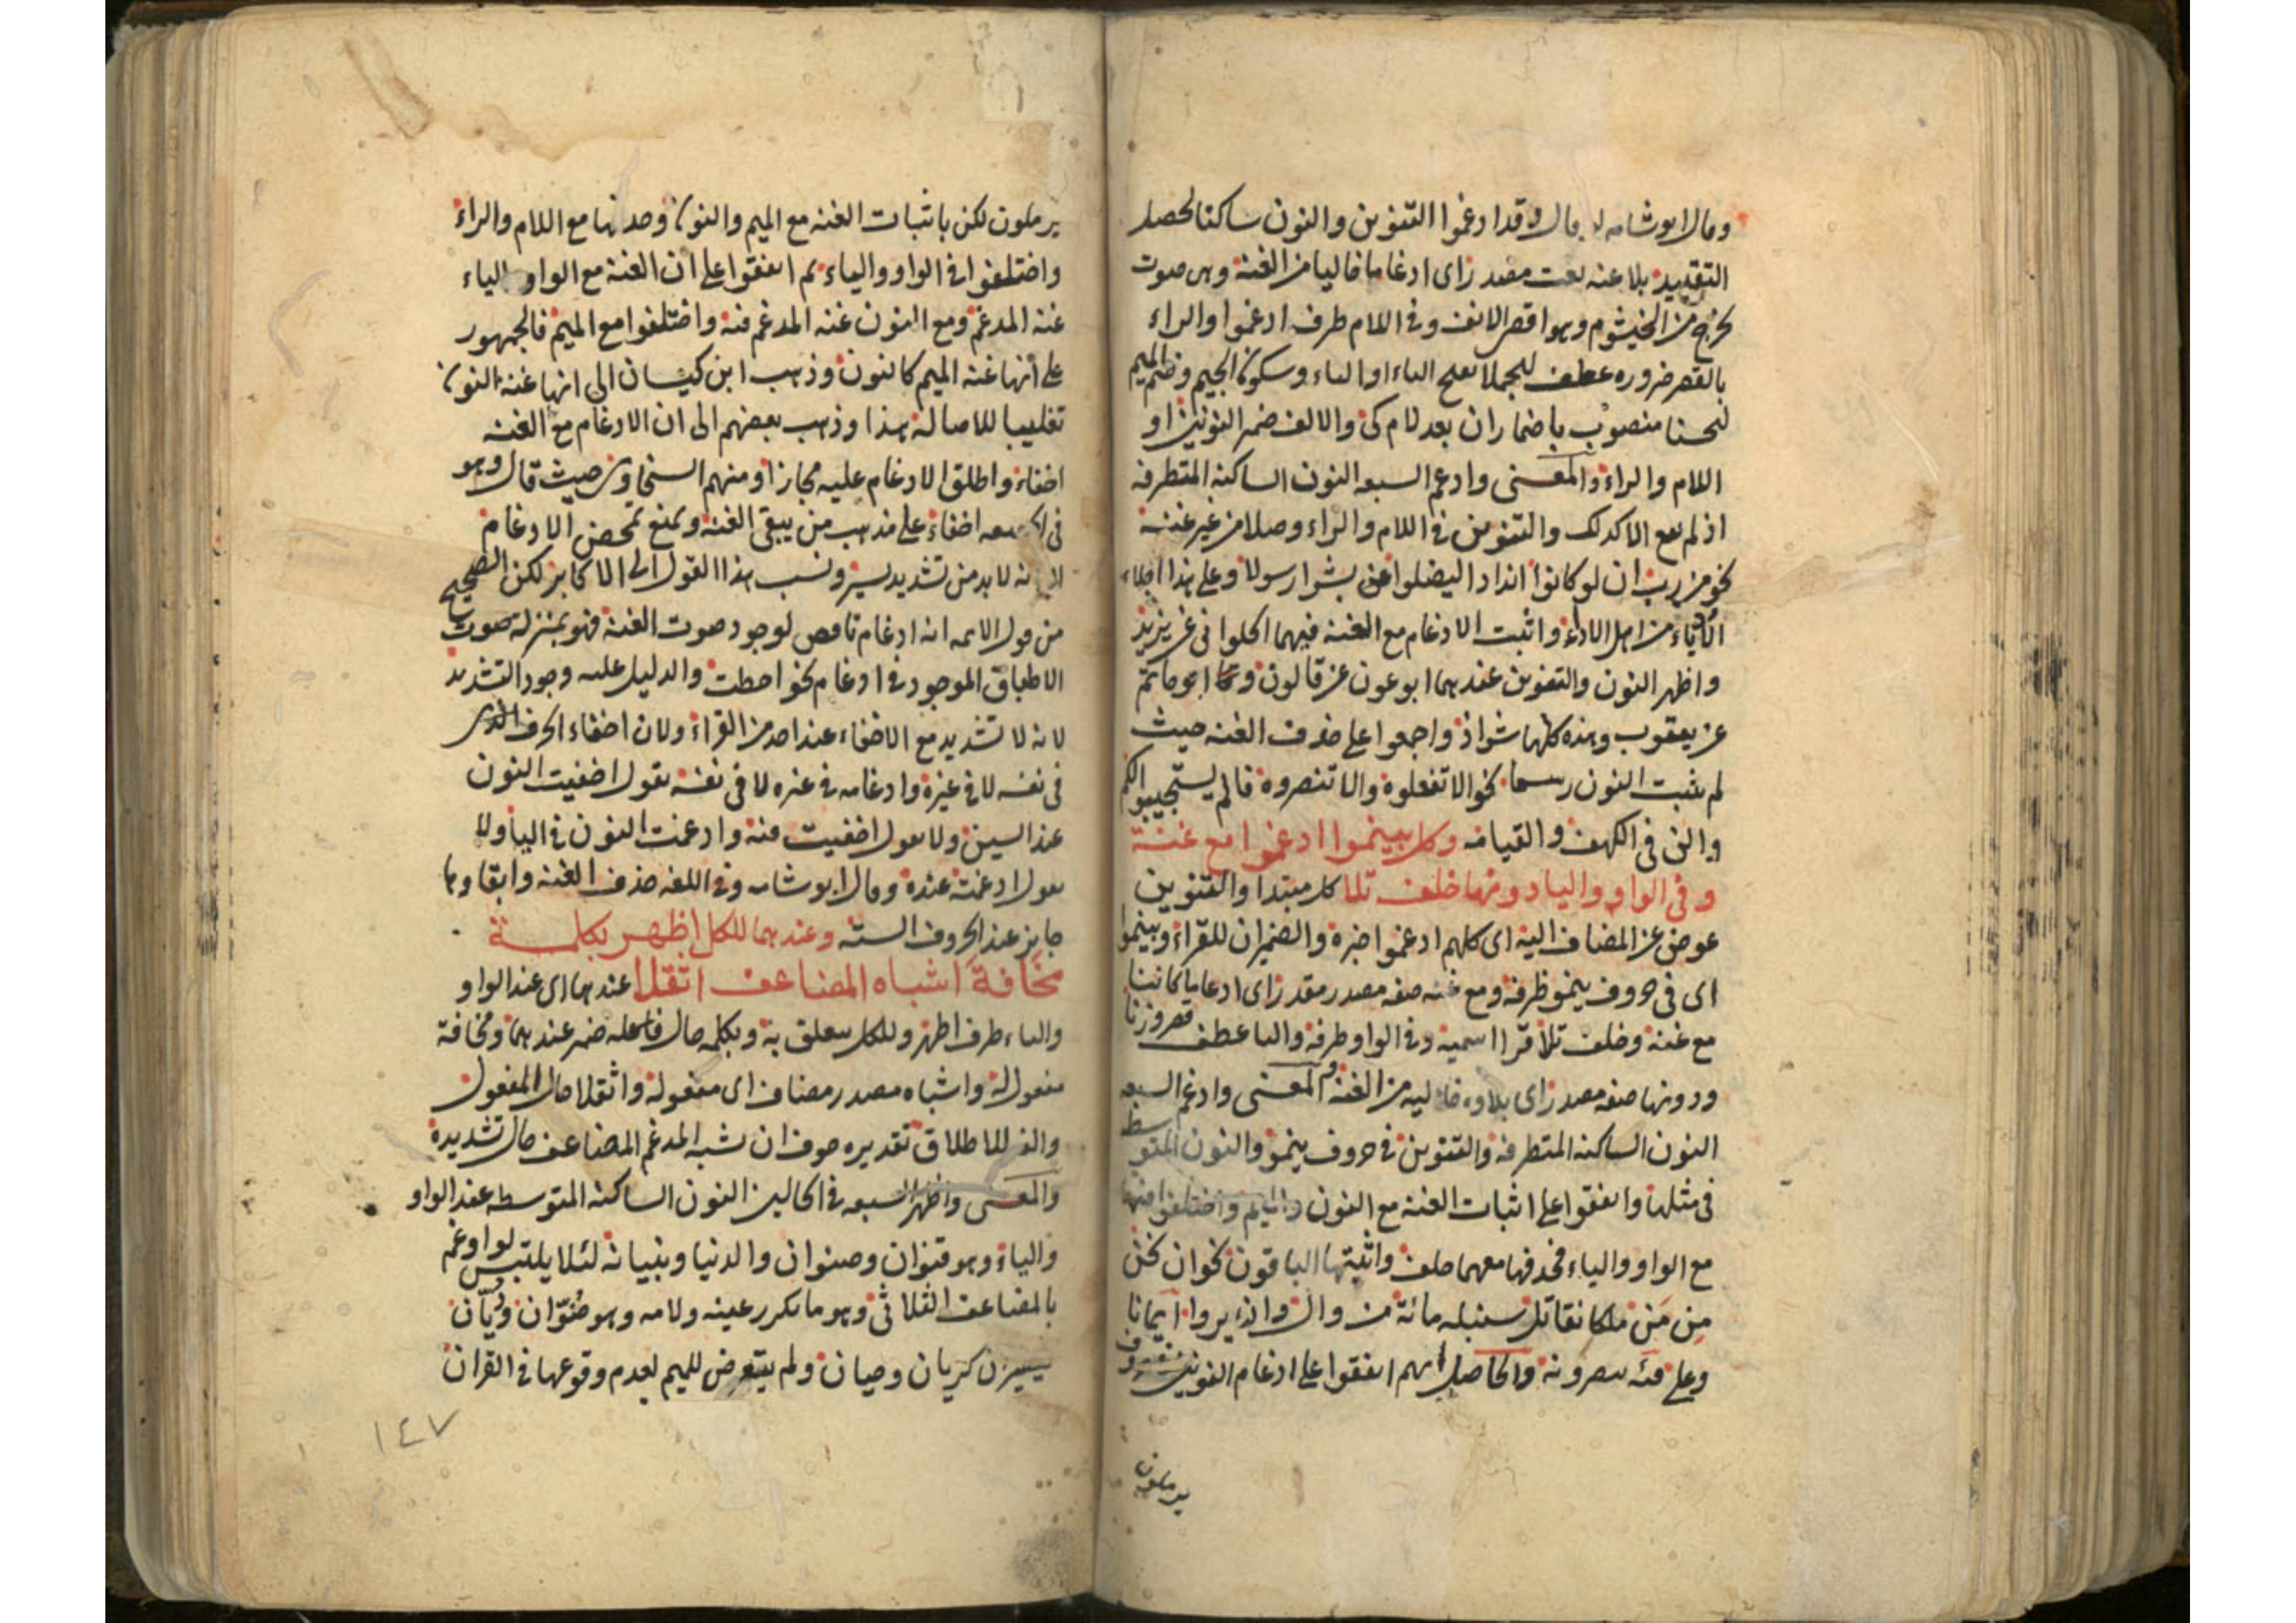 وقال ابو شامه قد ادغموا التنوين والنون ساكنا لحصل
التقدير بلا غنه نعت مصدر اى ادغاما خاليا من الغنة وهى صوت
يخرج من الخيشوم وهو اقصى الانف وفى اللام ظرف ادغموا والراء
بالقصر ضروره عطف ليجملا بفتح الياء او التاء وسكون الجيم وضم الميم
لحسنا منصوب باضمار ان بعد لام كى والالف ضمير النونين او
اللام والراء والمعنى وادغم السبعه النون الساكنه المتطرفه
اذ لم يقع الا كذلك والتنوين فى اللام والراء وصلا من غير غنة
نحو من رب ان لو كانوا اندادا ليضلوا عن بشرا رسولا وعلى هذا اجلاء
من اهل الاداء واثبت الادغام مع الغنه فيهما الحلوانى
واظهر النون والتنوين عندهما ابو عون عن قالون وابو حاتم
عن يعقوب وهذه كلها شواذ واجمعوا على حذف الغنه حيث
لم يثبت النون رسما نحو الا تفعلوه والا تنصروه فالم يستجيبوا لكم
والن فى الكهف والقيامه وكل بينموا ادغموا مع غنة
وفى الواو واليا دونها خلف تلا كل مبتدا والتنوين
عوض عن المضاف اليه اى كلهم ادغموا خبره والضميران للقراء وبينموا
اى فى حروف ينمو ظرفه ومع غنه صفه مصدر مقدر اى ادغاما كائنا
مع غنة وخلف تلا قرا اسمية وفى الواو ظرفه واليا عطف قصر وزنا
ودونها صفه مصدر اى تلاوه خاليه من الغنة والمعنى وادغم السبعه
النون الساكنه المتطرفه والتنوين فى حروف ينمو والنون المتوسط
فى مثلها واتفقوا على اثبات الغنه مع النون والميم واختلفوا فيها
مع الواو والياء فحذفها معهما خلف واثبتها الباقون نحو ان نحن
من من ملكا نقاتل سنبله مائة من وال وان يروا ايمانا
وعلى فئه ينصرونه والحاصل انهم اتفقوا على ادغام النونين فى حروف
يرملون
يرملون لكن باثبات الغنه مع الميم والنون وحذفها مع اللام والراء
واختلفوا فى الواو والياء ثم اتفقوا على ان الغنة مع الواو والياء
غنه المدغم ومع النون غنه المدغم فيه واختلفوا مع الميم فالجمهور
على انها غنه الميم كالنون وذهب ابن كيسان الى انها غنة النون
تغليبا للاصالة هذا وذهب بعضهم الى ان الادغام مع الغنه
اخفاء واطلق الادغام عليه مجازا ومنهم السخاوى حيث قال وهو
فى الحقيقه اخفاء على مذهب من يبقى الغنه ويمنع تمحض الادغام
الا انه لا بد من تشديد يسير ونسب هذا القول الى الاكابر لكن الصحيح
من قول الائمه انه ادغام ناقص لوجود صوت الغنة فهو بمنزلة صوت
الاطباق الموجود فى ادغام نحو احطت والدليل عليه وجود التشديد
لانه لا تشديد مع الاخفاء عند احد من القراء ولان اخفاء الحرف الذى
فى نفسه لا فى غيره وادغامه فى غيره لا فى نفسه يقول اخفيت النون
عند السين ولا يقول اخفيت فيه وادغمت النون فى الياء ولا
يقول ادغمت عنده وقال ابو شامه وفى اللغه حذف الغنه وابقاوها
جايز عند الحروف الستة وعندهما للكل اظهر بكلمة
مخافة اشباه المضاعف اثقلا عندهما اى عند الواو
والياء ظرف اظهر وللكل يتعلق به وبكلمه حال فاعله ضمير عندهما ومخافة
مفعول له واشباه مصدر مضاف اى مفعوله واثقلا حال المفعول
والف للاطلاق تقديره خوف ان يشبه المدغم المضاعف حال تشديده
والمعنى واظهر السبعه فى الحالين النون الساكنه المتوسطه عند الواو
والياء وهو قنوان وصنوان والدنيا وبنيانه لئلا يلتبس لو ادغم
بالمضاعف الثلاثى وهو ما تكرر عينه ولامه وهو صُوّان ودُيّان
كريان وحيان ولم يتعرض للميم لعدم وقوعها فى القران
١٤٧